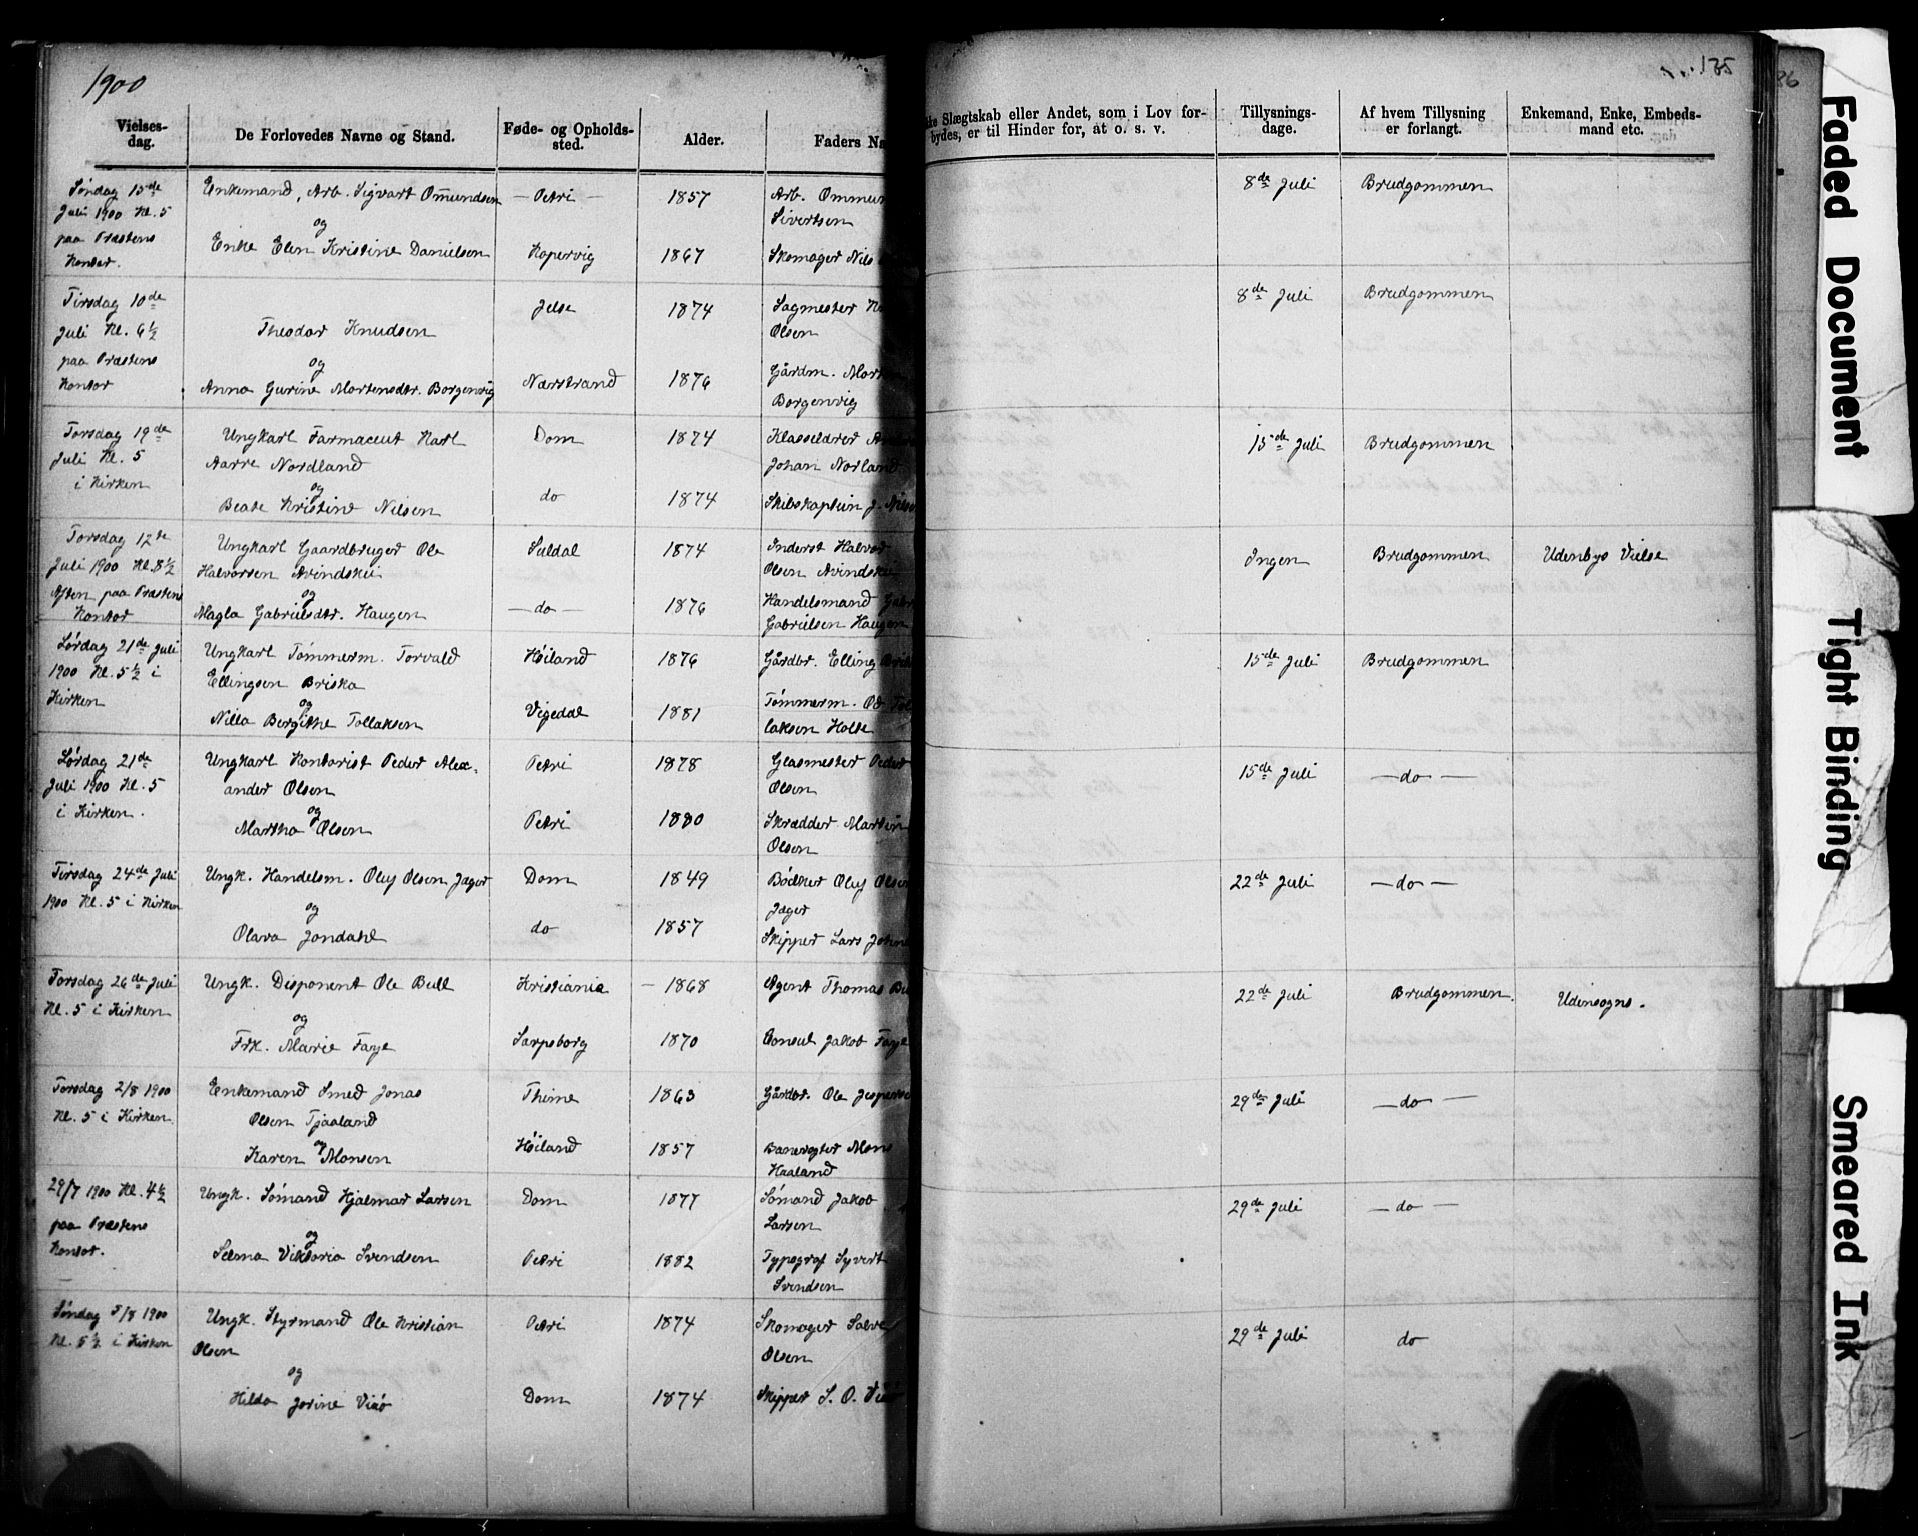 1900
135
86
Vielses-
dag.
De Forlovedes Navne og Stand.
Føde- og Opholds-
sted.
Alder.
Faders Na
ke Slægtskab eller Andet, som i Lov for-
bydes, er til Hinder for, at o. s. v.
Tillysnings-
dage.
Af hvem Tillysning
er forlangt.
Enkemand, Enke, Embeds-
mand etc.
Søndag 15de
Juli 1900 Kl. 5
paa Præstens
Kontor.
Enkemand, Arb. Sigvart Omundsen
og
Enke Elen Kristine Danielsen
— Petri —
Kopervig
1857
1867
Arb. Ommun
Sivertsen
Skomager Nils
8de Juli
Brudgommen
Tirsdag 10de
Juli Kl. 6½
paa Præstens
Kontor
Theodor Knudsen
og
Anna Gurine Mortensdtr. Borgenvig
Jelse
Nærstrand
1874
1876
Sagmester
Olsen
Gårdm. Mort
Borgenvig
8de Juli
Brudgommen
Torsdag 19de
Juli Kl. 5
i Kirken
Ungkarl Farmaceut Karl
Aarre Nordland
og
Beate Kristine Nilsen
Dom
do
1874
1874
Klasselærer
Johan Norland
Skibskaptein J. Nilse
15de Juli
Brudgommen
Torsdag 12te
Juli 1900 Kl. 8½
Aften paa Præstens
Kontor
Ungkarl Gaardbruger Ole
Halvorsen Avindskei
og
Magla Gabrielsdtr. Haugen
Suldal
— do —
1874
1876
Inderst Halvor
Olsen Avindskei
Handelsmand Gabr
Gabrielsen Haugen
Ingen
Brudgommen
Udenbys Vielse
Lørdag 21de Juli
1900 Kl. 5½ i
Kirken
Ungkarl Tømmerm. Torvald
Ellingsen Briska
og
Nilla Bergithe Tollaksen
Høiland
Vigedal
1876
1881
Gårdbr. Elling Brisk
Tømmerm. Od Tol
laksen Holte
15de Juli
Brudgommen
Lørdag 21de
Juli 1900 Kl. 5
i Kirken.
Ungkarl Kontorist Peder Alex-
ander Olsen
og
Martha Olsen
Petri
Petri
1878
1880
Glasmester Peder
Olsen
Skrædder Martin
Olsen
15de Juli
— do —
Tirsdag 24de Juli
1900 Kl. 5 i Kirken
Ungk. Handelsm. Oluf Olsen Jæger
og
Olava Jondahl
Dom
do
1849
1857
Bødker Oluf Olsen
Jæger
Skipper Lars John
22de Juli
— do —
Torsdag 26de Juli
Kl. 5 i Kirken
Ungk. Disponent Ole Bull
og
Frk. Marie Faye
Kristiania
Sarpsborg
— 1868
1870
Agent Thomas Bu
Consul Jakob Faye
22de Juli
Brudgommen.
Udensogns.
Torsdag 2/8 1900
Kl. 5 i Kirken
Enkemand Smed Jonas
Olsen Tjaaland
og
Karen Monsen
Thime
Høiland
1863
1857
Gårdbr. Ole Jesperse
Banevogter Mons
Haaland
29de Juli
— do —
29/7 1900 Kl. 4½
paa Præstens
Kontor.
Ungk. Sømand Hjalmar Larsen
og
Selma Viktoria Svendsen
Dom
Petri
1877
1882
Sømand Jakob
Larsen
Typograf Syvert
Svendsen
29de Juli
— do —
Søndag 5/8 1900
Kl. 5½ i Kirken
Ungk. Styrmand Ole Kristian
Olsen
og
Hilda Jorine Viéø
Petri
Dom
1874
1874
Skomager Salve
Olsen
Skipper S. O. Vi
29de Juli
do
Faded Document
Tight Binding
Smeared Ink